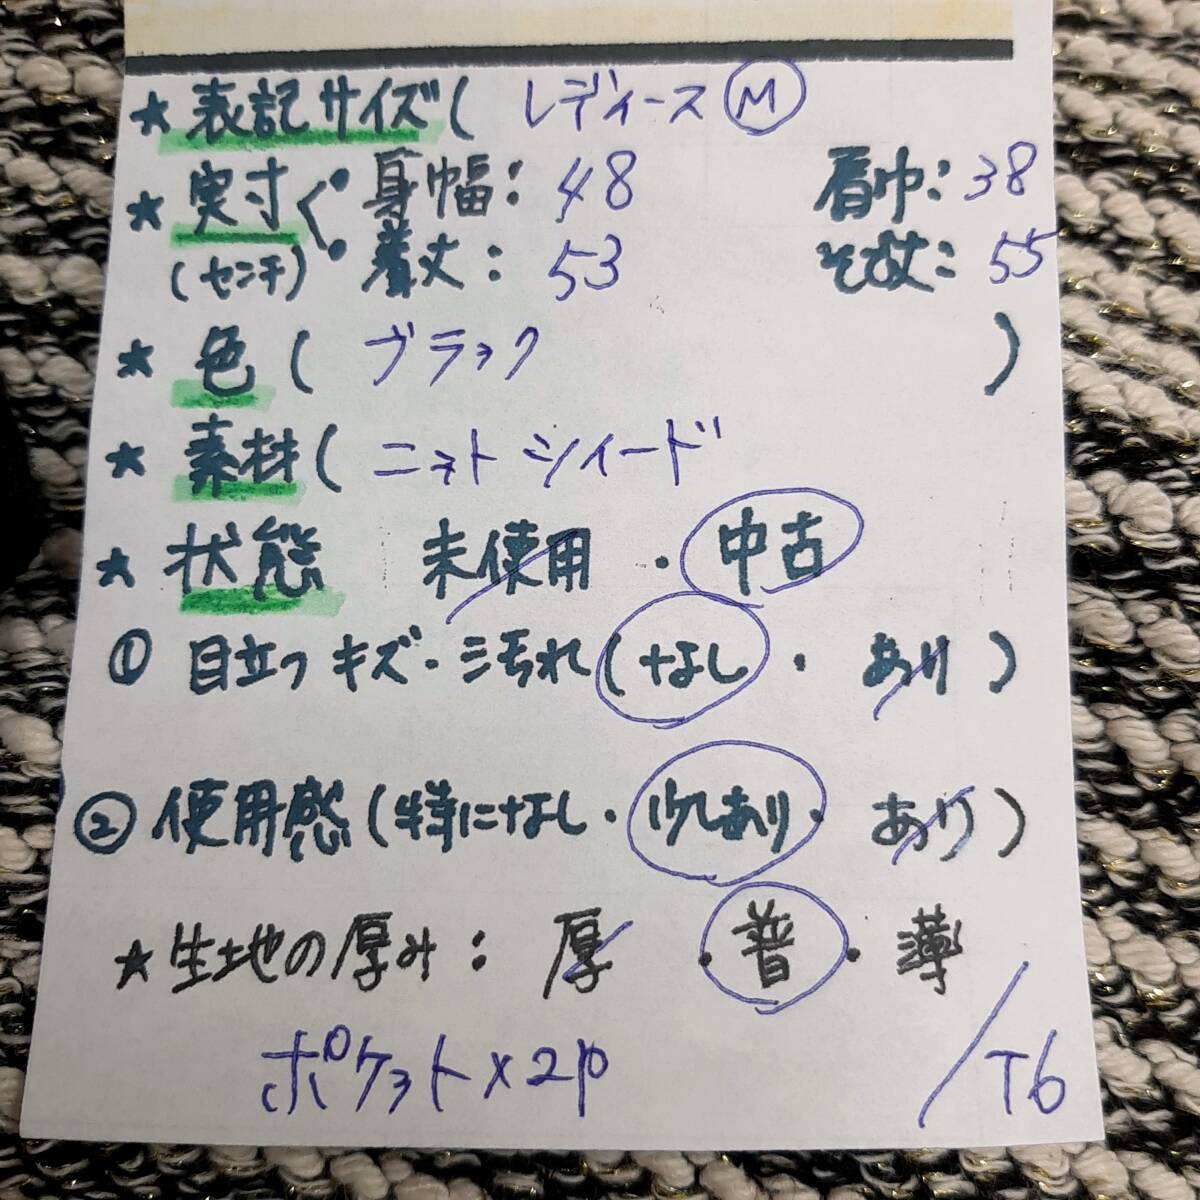 ★表記サイズ( レディースⓂ
★実寸く・身幅：48 肩巾：38
(センチ)・着丈：53 そで丈：55
★色(ブラック)
★素材(ニット ツイード
★状態 未使用・中古
① 目立つキズ・汚れ(なし・あり)
② 使用感(特になし・少しあり・あり)
★生地の厚み：厚・普・薄
ポケット×2p /T6